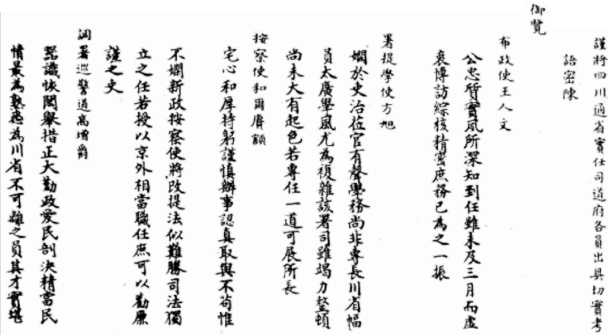 謹將四川通省實任司道府各員出具切實考
語密陳
御覽
布政使王人文
公忠質實夙所深知到任雖未及三月而虛
衷博訪綜核精密庶務已為之一振
署提學使方旭
嫺於吏治蒞官有聲學務尚非專長川省幅
員太廣學風尤為複雜該署司雖竭力整頓
尚未大有起色若專任一道可展所長
按察使和爾賡額
宅心和厚持躬謹慎辦事認真取與不苟惟
不嫺新政按察使將改提法似難勝司法獨
立之任若授以京外相當職任庶可以勤廉
謹之史
調署巡警道高增爵
器識恢閎舉措正大勤政愛民剖決精當民
情最為熟悉為川省不可離之員其才實堪